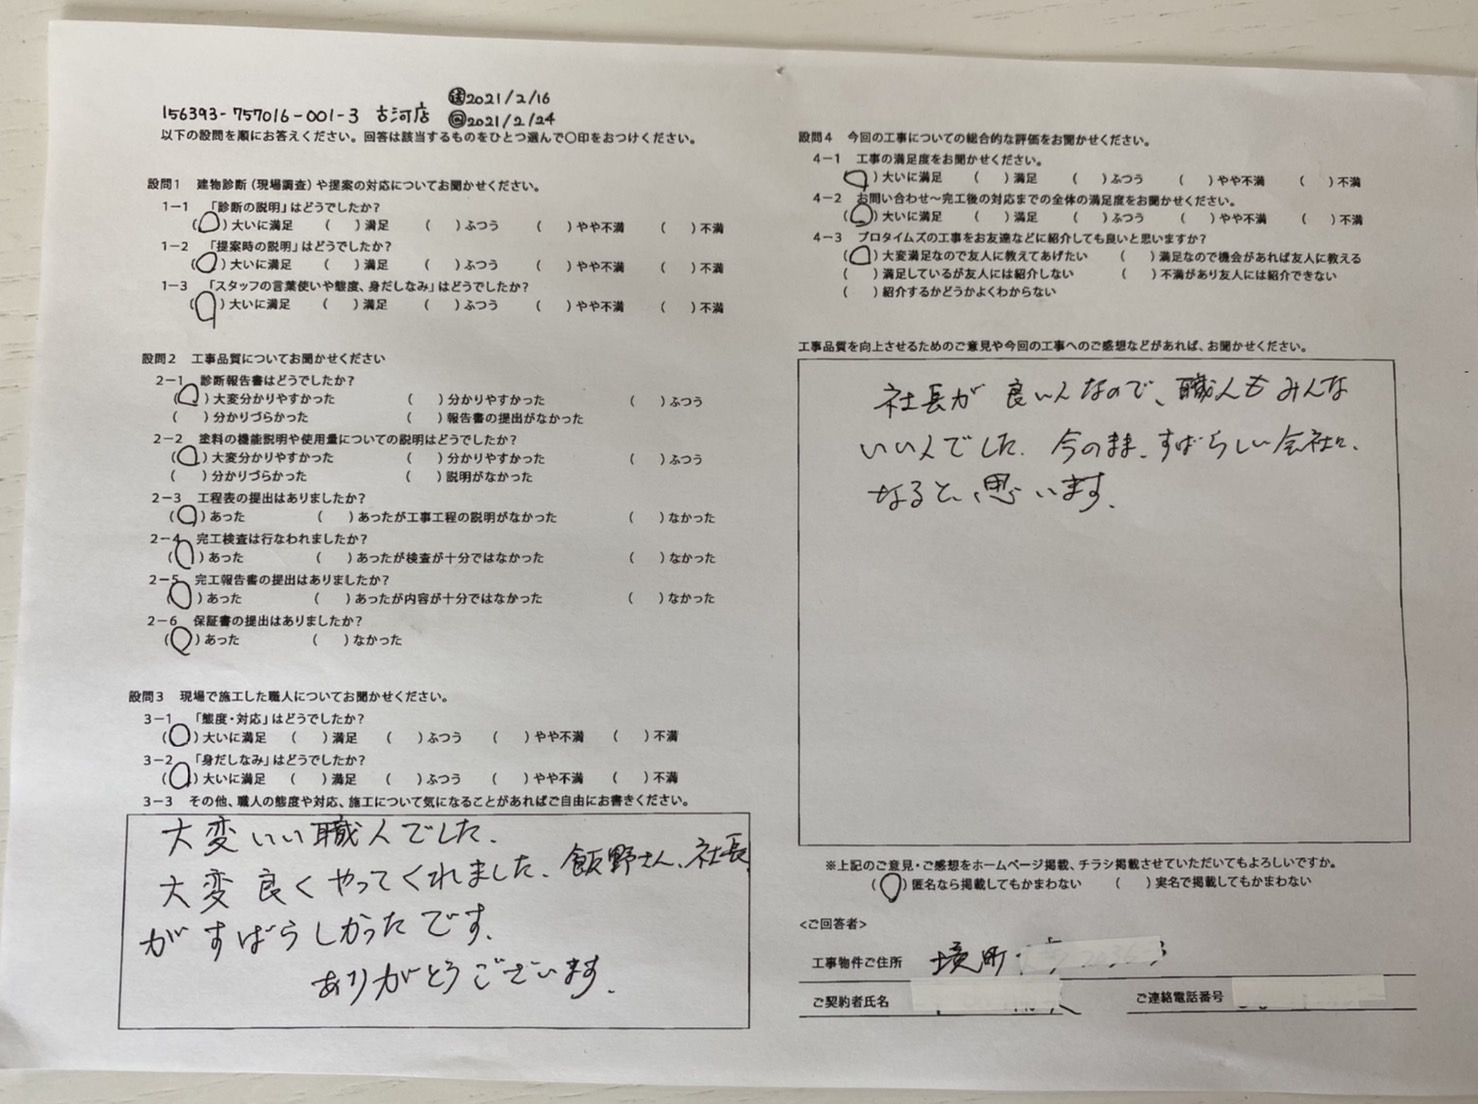 156393-757016-001-3 古河店
送2021/2/16
回2021/2/24
以下の設問を順にお答えください。回答は該当するものをひとつ選んで〇印をおつけください。
設問1 建物診断(現場調査)や提案の対応についてお聞かせください。
1-1 「診断の説明」はどうでしたか?
(〇)大いに満足 ( )満足 ( )ふつう ( )やや不満 ( )不満
1-2 「提案時の説明」はどうでしたか?
(〇)大いに満足 ( )満足 ( )ふつう ( )やや不満 ( )不満
1-3 「スタッフの言葉使いや態度、身だしなみ」はどうでしたか?
(〇)大いに満足 ( )満足 ( )ふつう ( )やや不満 ( )不満
設問2 工事品質についてお聞かせください
2-1 診断報告書はどうでしたか?
(〇)大変分かりやすかった ( )分かりやすかった ( )ふつう
( )分かりづらかった ( )報告書の提出がなかった
2-2 塗料の機能説明や使用量についての説明はどうでしたか?
(〇)大変分かりやすかった ( )分かりやすかった ( )ふつう
( )分かりづらかった ( )説明がなかった
2-3 工程表の提出はありましたか?
(〇)あった ( )あったが工事工程の説明がなかった ( )なかった
2-4 完工検査は行なわれましたか?
(〇)あった ( )あったが検査が十分ではなかった ( )なかった
2-5 完工報告書の提出はありましたか?
(〇)あった ( )あったが内容が十分ではなかった ( )なかった
2-6 保証書の提出はありましたか?
(〇)あった ( )なかった
設問3 現場で施工した職人についてお聞かせください。
3-1 「態度・対応」はどうでしたか?
(〇)大いに満足 ( )満足 ( )ふつう ( )やや不満 ( )不満
3-2 「身だしなみ」はどうでしたか?
(〇)大いに満足 ( )満足 ( )ふつう ( )やや不満 ( )不満
3-3 その他、職人の態度や対応、施工について気になることがあればご自由にお書きください。
大変いい職人でした、
大変良くやってくれました、飯野さん、社長
がすばらしかったです、
ありがとうございます、
設問4 今回の工事についての総合的な評価をお聞かせください。
4-1 工事の満足度をお聞かせください。
(〇)大いに満足 ( )満足 ( )ふつう ( )やや不満 ( )不満
4-2 お問い合わせ〜完工後の対応までの全体の満足度をお聞かせください。
(〇)大いに満足 ( )満足 ( )ふつう ( )やや不満 ( )不満
4-3 プロタイムズの工事をお友達などに紹介しても良いと思いますか?
(〇)大変満足なので友人に教えてあげたい ( )満足なので機会があれば友人に教える
( )満足しているが友人には紹介しない ( )不満があり友人には紹介できない
( )紹介するかどうかよくわからない
工事品質を向上させるためのご意見や今回の工事へのご感想などがあれば、お聞かせください。
社長が良い人なので、職人もみんな
いい人でした、今のまま、すばらしい会社に、
なると、思います、
※上記のご意見・ご感想をホームページ掲載、チラシ掲載させていただいてもよろしいですか。
(〇)匿名なら掲載してもかまわない ( )実名で掲載してもかまわない
<ご回答者>
工事物件ご住所 境町
ご契約者氏名 ご連絡電話番号